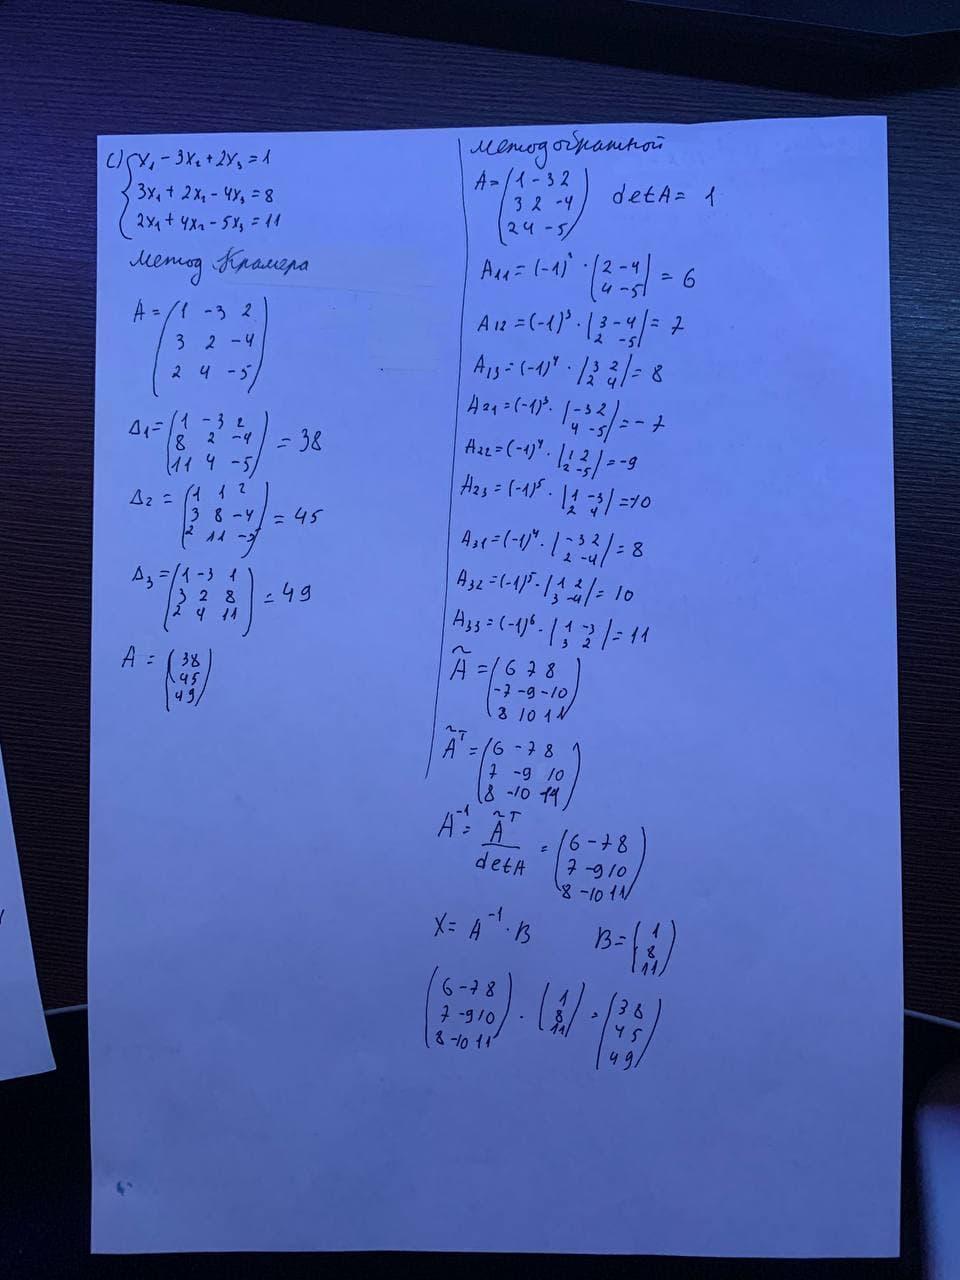 c) { x₁ - 3x₂ + 2x₃ = 1
3x₁ + 2x₂ - 4x₃ = 8
2x₁ + 4x₂ - 5x₃ = 11
метод Крамера
A = (1 -3 2
3 2 -4
2 4 -5)
Δ₁ = (1 -3 2
8 2 -4
11 4 -5) = 38
Δ₂ = (1 1 2
3 8 -4
2 11 -5) = 45
Δ₃ = (1 -3 1
3 2 8
2 4 11) = 49
A = (38
45
49)
метод обратной
A = (1 -3 2
3 2 -4
2 4 -5) detA = 1
A₁₁ = (-1)² · |2 -4
4 -5| = 6
A₁₂ = (-1)³ · |3 -4
2 -5| = 7
A₁₃ = (-1)⁴ · |3 2
2 4| = 8
A₂₁ = (-1)³ · |-3 2
4 -5| = -7
A₂₂ = (-1)⁴ · |1 2
2 -5| = -9
A₂₃ = (-1)⁵ · |1 -3
2 4| = -10
A₃₁ = (-1)⁴ · |-3 2
2 -4| = 8
A₃₂ = (-1)⁵ · |1 2
3 -4| = 10
A₃₃ = (-1)⁶ · |1 -3
3 2| = 11
Ã = (6 7 8
-7 -9 -10
8 10 11)
Ãᵀ = (6 -7 8
7 -9 10
8 -10 11)
A⁻¹ = Ãᵀ / detA = (6 -7 8
7 -9 10
8 -10 11)
X = A⁻¹ · B B = (1
8
11)
(6 -7 8
7 -9 10
8 -10 11) · (1
8
11) = (38
45
49)